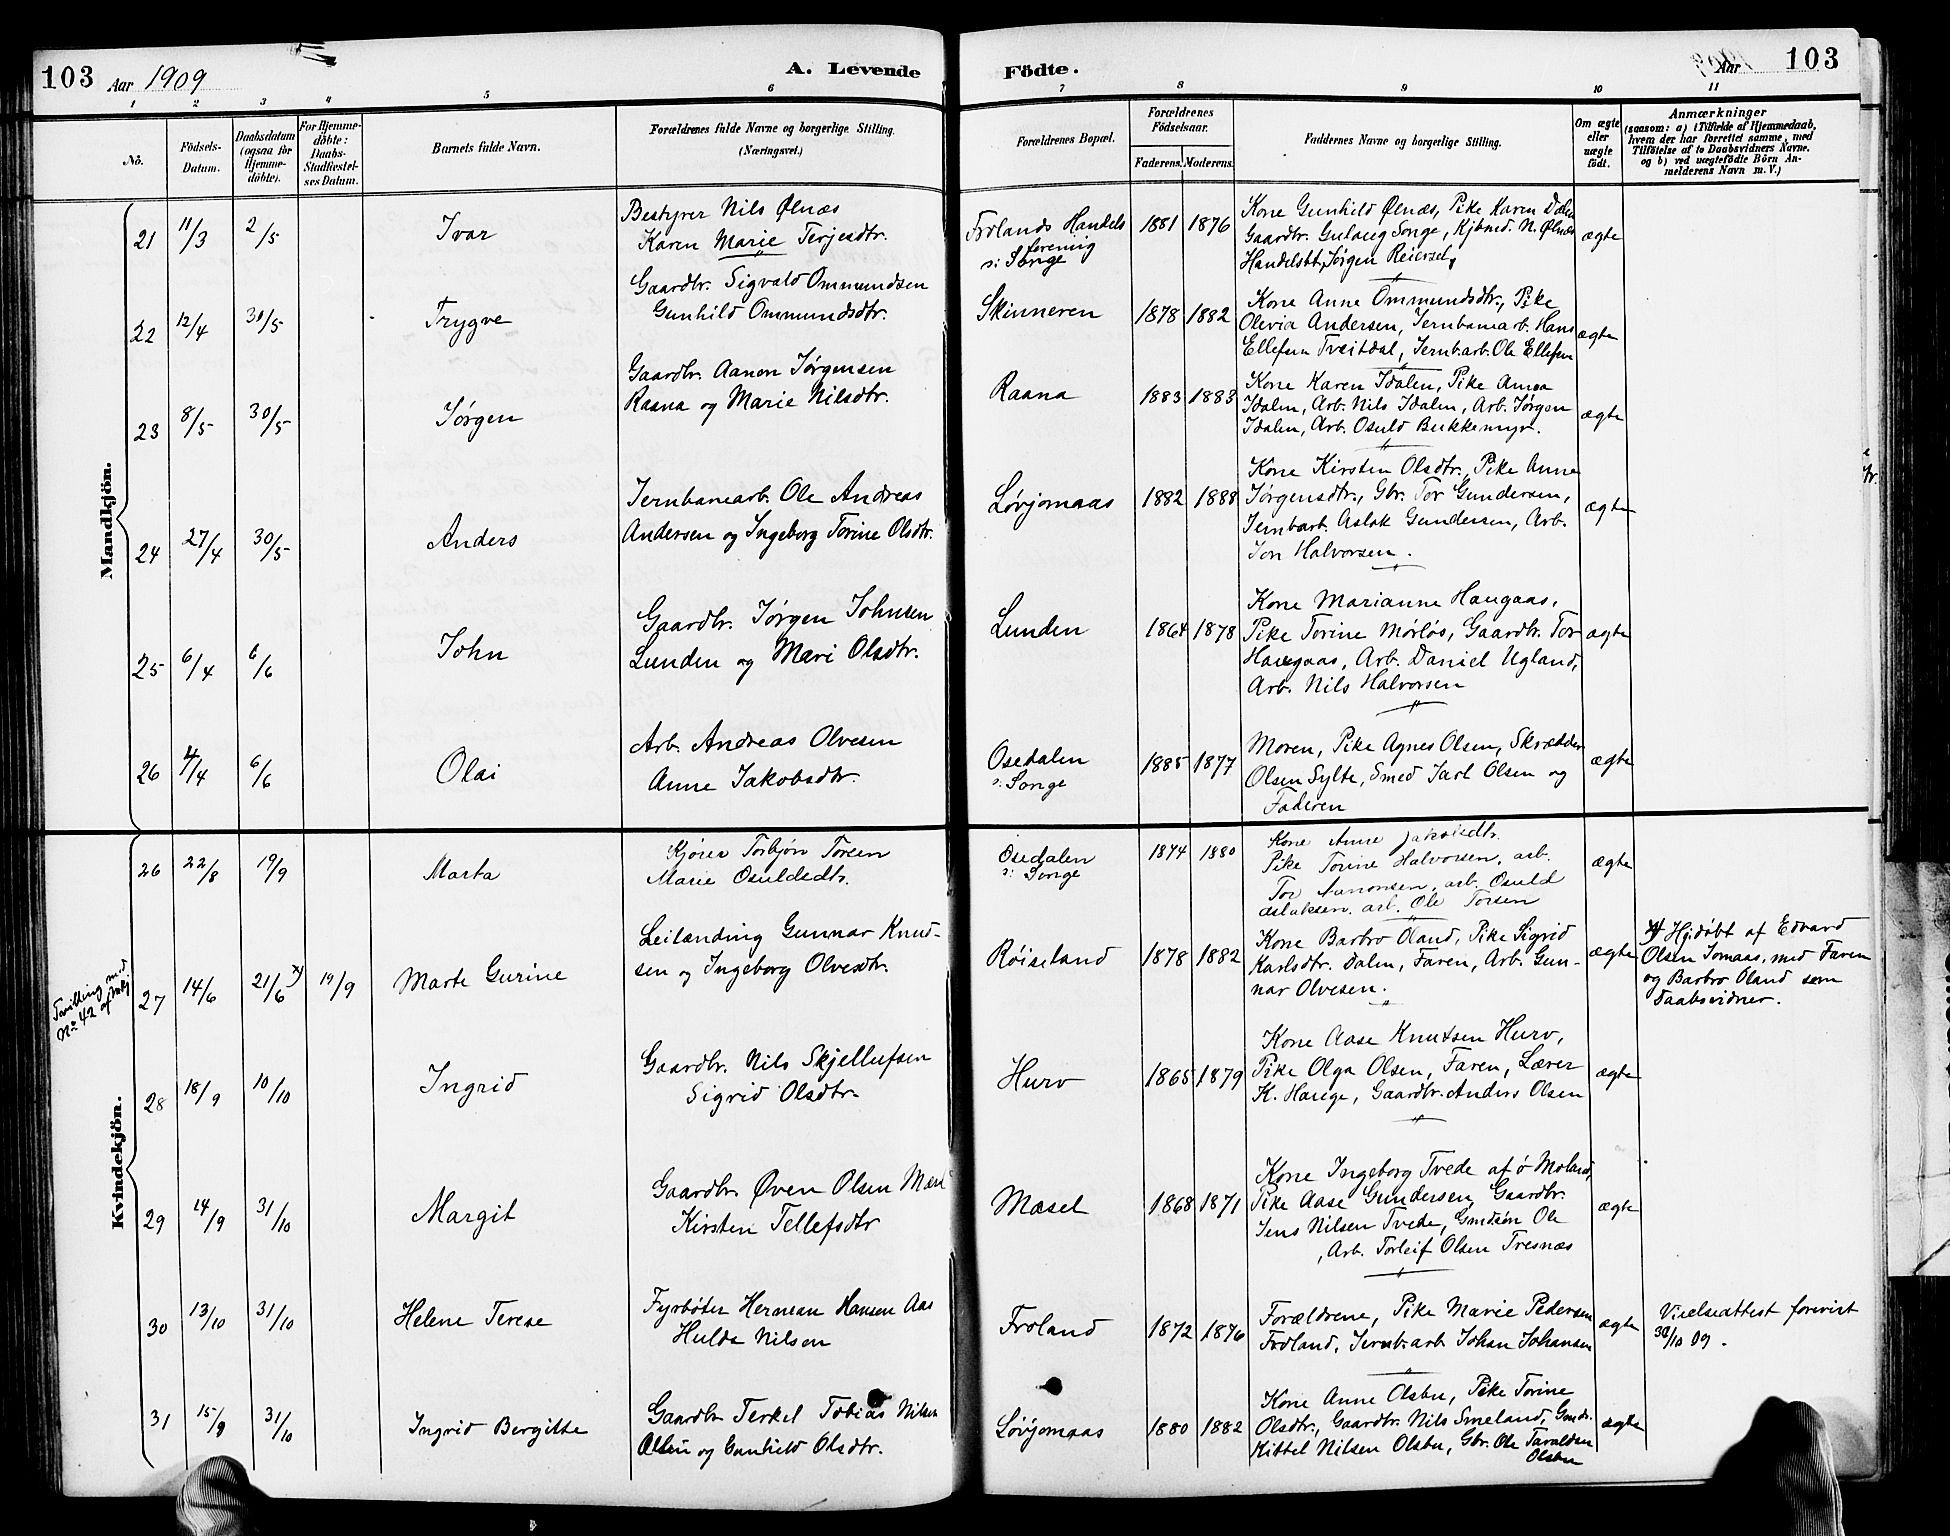 103 Aar 1909 A. Levende Födte. Aar 103
1 2 3 4 5 6 7 8 9 10 11
No.
Födsels-
Datum.
Daabsdatum
(ogsaa for
Hjemme-
döbte).
For Hjemme-
döbte:
Daabs-
Stadfæstel-
ses Datum.
Barnets fulde Navn.
Forældrenes fulde Navne og borgerlige Stilling.
(Næringsvei.)
Forældrenes Bopæl.
Forældrenes
Födselsaar.
Faderens. Moderens.
Faddernes Navne og borgerlige Stilling.
Om ægte
eller
uægte
födt.
Anmærkninger
(saasom: a) i Tilfælde af Hjemmedaab,
hvem der har forrettet samme, med
Tilföielse af to Daabsvidners Navne,
og b) ved uægtefödte Börn An-
melderens Navn m. V.)
Mandkjön.
21 11/3 2/5 Ivar
Bestyrer Nils Ølnæs
Karen Marie Terjesdtr.
Frolands Handels
forening
s: Songe
1881 1876
Kone Gunhild Ølnæs, Pike Karen Dalen
Gaardbr. Gulaug Songe, Kjbmd. N. Ølnæs
Handelsbt. Jørgen Reiersel,
ægte
22 12/4 30/5 Trygve
Gaardbr. Sigvald Ommundsen
Gunhild Ommundsdtr.
Skinneren 1878 1882
Kone Anne Ommundsdtr., Pike
Olivia Andersen, Jernbanearb. Hans
Ellefsen Tveitdal, Jernb.arb. Ole Ellefsen
ægte
23 8/5 30/5 Jørgen
Gaardbr. Aanon Jørgensen
Raana og Marie Nilsdtr.
Raana 1883 1883
Kone Karen Idalen, Pike Anna
Idalen, Arb. Nils Idalen, Arb. Jørgen
Idalen, Arb. Osuld Bukkemyr.
ægte
24 27/4 30/5 Anders
Jernbanearb. Ole Andreas
Andersen og Ingeborg Torine Olsdtr.
Løvjomaas 1882 1888
Kone Kirsten Olsdtr., Pike Anne
Jørgensdtr., Gbr. Tor Gundersen,
Jernbarb. Aslak Gundersen, Arb.
Jon Halvorsen.
ægte
25 6/4 6/6 John
Gaardbr. Jørgen Johnsen
Lunden og Mari Olsdtr.
Lunden 1864 1878
Kone Marianne Haugaas,
Pike Torine Mørløs, Gaardbr. Tor
Haugaas, Arb. Daniel Ugland,
Arb. Nils Halvorsen
ægte
26 4/4 6/6 Olai
Arb. Andreas Olvesen
Anne Jakobsdtr.
Osedalen
s: Songe
1885 1877
Moren, Pike Agnes Olsen, Skrædder
Olsen Sylte, Smed Jarl Olsen og
Faderen
ægte
Kvindekjön.
26 22/8 19/9 Marta
Kjører Torbjørn Torsen
Marie Osuldsdtr.
Osedalen
s: Songe
1874 1880
Kone Anne
Pike Torine Halvorsen, arb.
Tor Aanonsen, arb. Osuld
Aslaksen, arb. Ole Torsen
ægte
Tvilling med
No 42 af
27 14/6 21/6 x) 19/9 Marte Gurine
Leilænding Gunnar Knud-
sen og Ingeborg Olvesdtr.
Røiseland 1878 1882
Kone Barbro Øland, Pike Sigrid
Karlsdtr. Dalen, Faren, Arb. Gun-
nar Olvesen.
ægte
x) Hjdøbt af Edvard
Olsen Jomaas, med Faren
og Barbro Øland som
Daabsvidner.
28 18/9 10/10 Ingrid
Gaardbr. Nils Skjellufsen
Sigrid Olsdtr.
Hurv 1865 1879
Kone Aase Knutsen Hurv,
Pike Olga Olsen, Faren, Lærer
K. Hauge, Gaardbr. Anders Olsen
ægte
29 14/9 31/10 Margit
Gaardbr. Øven Olsen
Kirsten Tellefsdtr
Mæsel 1868 1871
Kone Ingeborg Tvede af ø Moland,
Pike Aase Gundersen, Gaardbr.
Jens Nilsen Tvede, Gmdsøn Ole
, Arb. Torleif Olsen Tresnæs
ægte
30 13/10 31/10 Helene Terese
Fyrbøter Herman Hansen Aas
Hulda Nilsen
Froland 1872 1876
Forældrene, Pike Marie Pedersen
Froland, Jernb.arb. Johan Johansen
ægte
Vielsesattest forevist
30/10 09.
31 15/9 31/10 Ingrid Bergitte
Gaardbr. Terkel Tobias Nilsen
Olsen og Gunhild Olsdtr.
Løvjomaas 1880 1882
Kone Anne Olsbu, Pike Torine
Olsdtr., Gaardbr. Nils Smeland, Gmds.
Kittel Nilsen Olsbu, Gbr. Ole Taraldsen
Olsbu
ægte